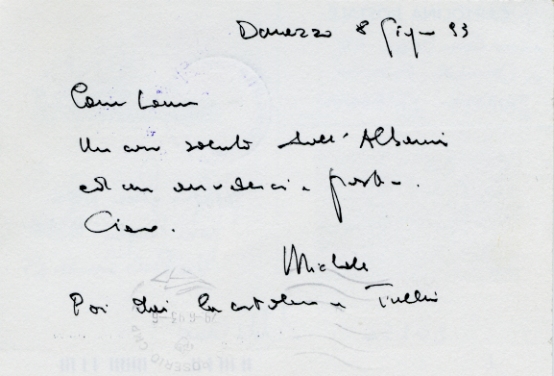 Durazzo 8 Giugno 93
Un caro saluto dall'Albania
ed un arrivederci a presto.
Ciao.
Michele
Poi dai la cartolina a Tullio